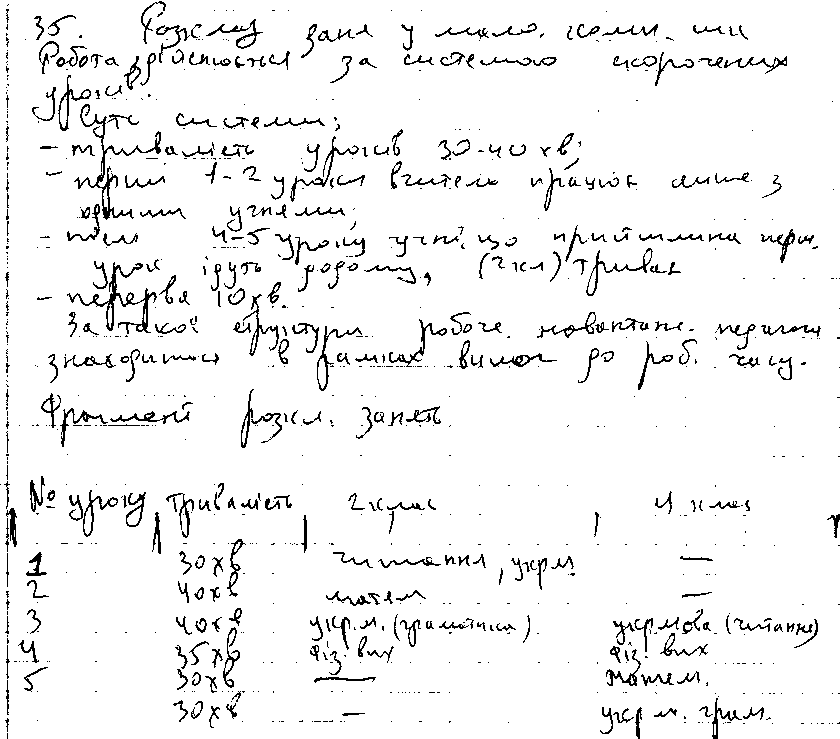 35. Розклад заня у мало. комп. шк
Робота здійснюється за системою скорочених
уроків.
Суть системи:
- тривалість уроків 30-40 хв;
- перші 1-2 уроки вчитель працює лише з
одними учнями;
- після 4-5 уроку учні, що прийшли на перш.
урок ідуть додому, (2 кл) триває
- перерва 10 хв.
За такої структури робоче навантаж. педагога
знаходиться в рамках вимог до роб. часу.
Фрагмент розкл. занять
№ уроку тривалість 2 клас 4 клас
1 30 хв читання, укр м. —
2 40 хв матем —
3 40 хв укр. м. (граматика) укр мова (читання)
4 35 хв фіз. вих фіз. вих
5 30 хв — матем.
30 хв — укр м. грам.